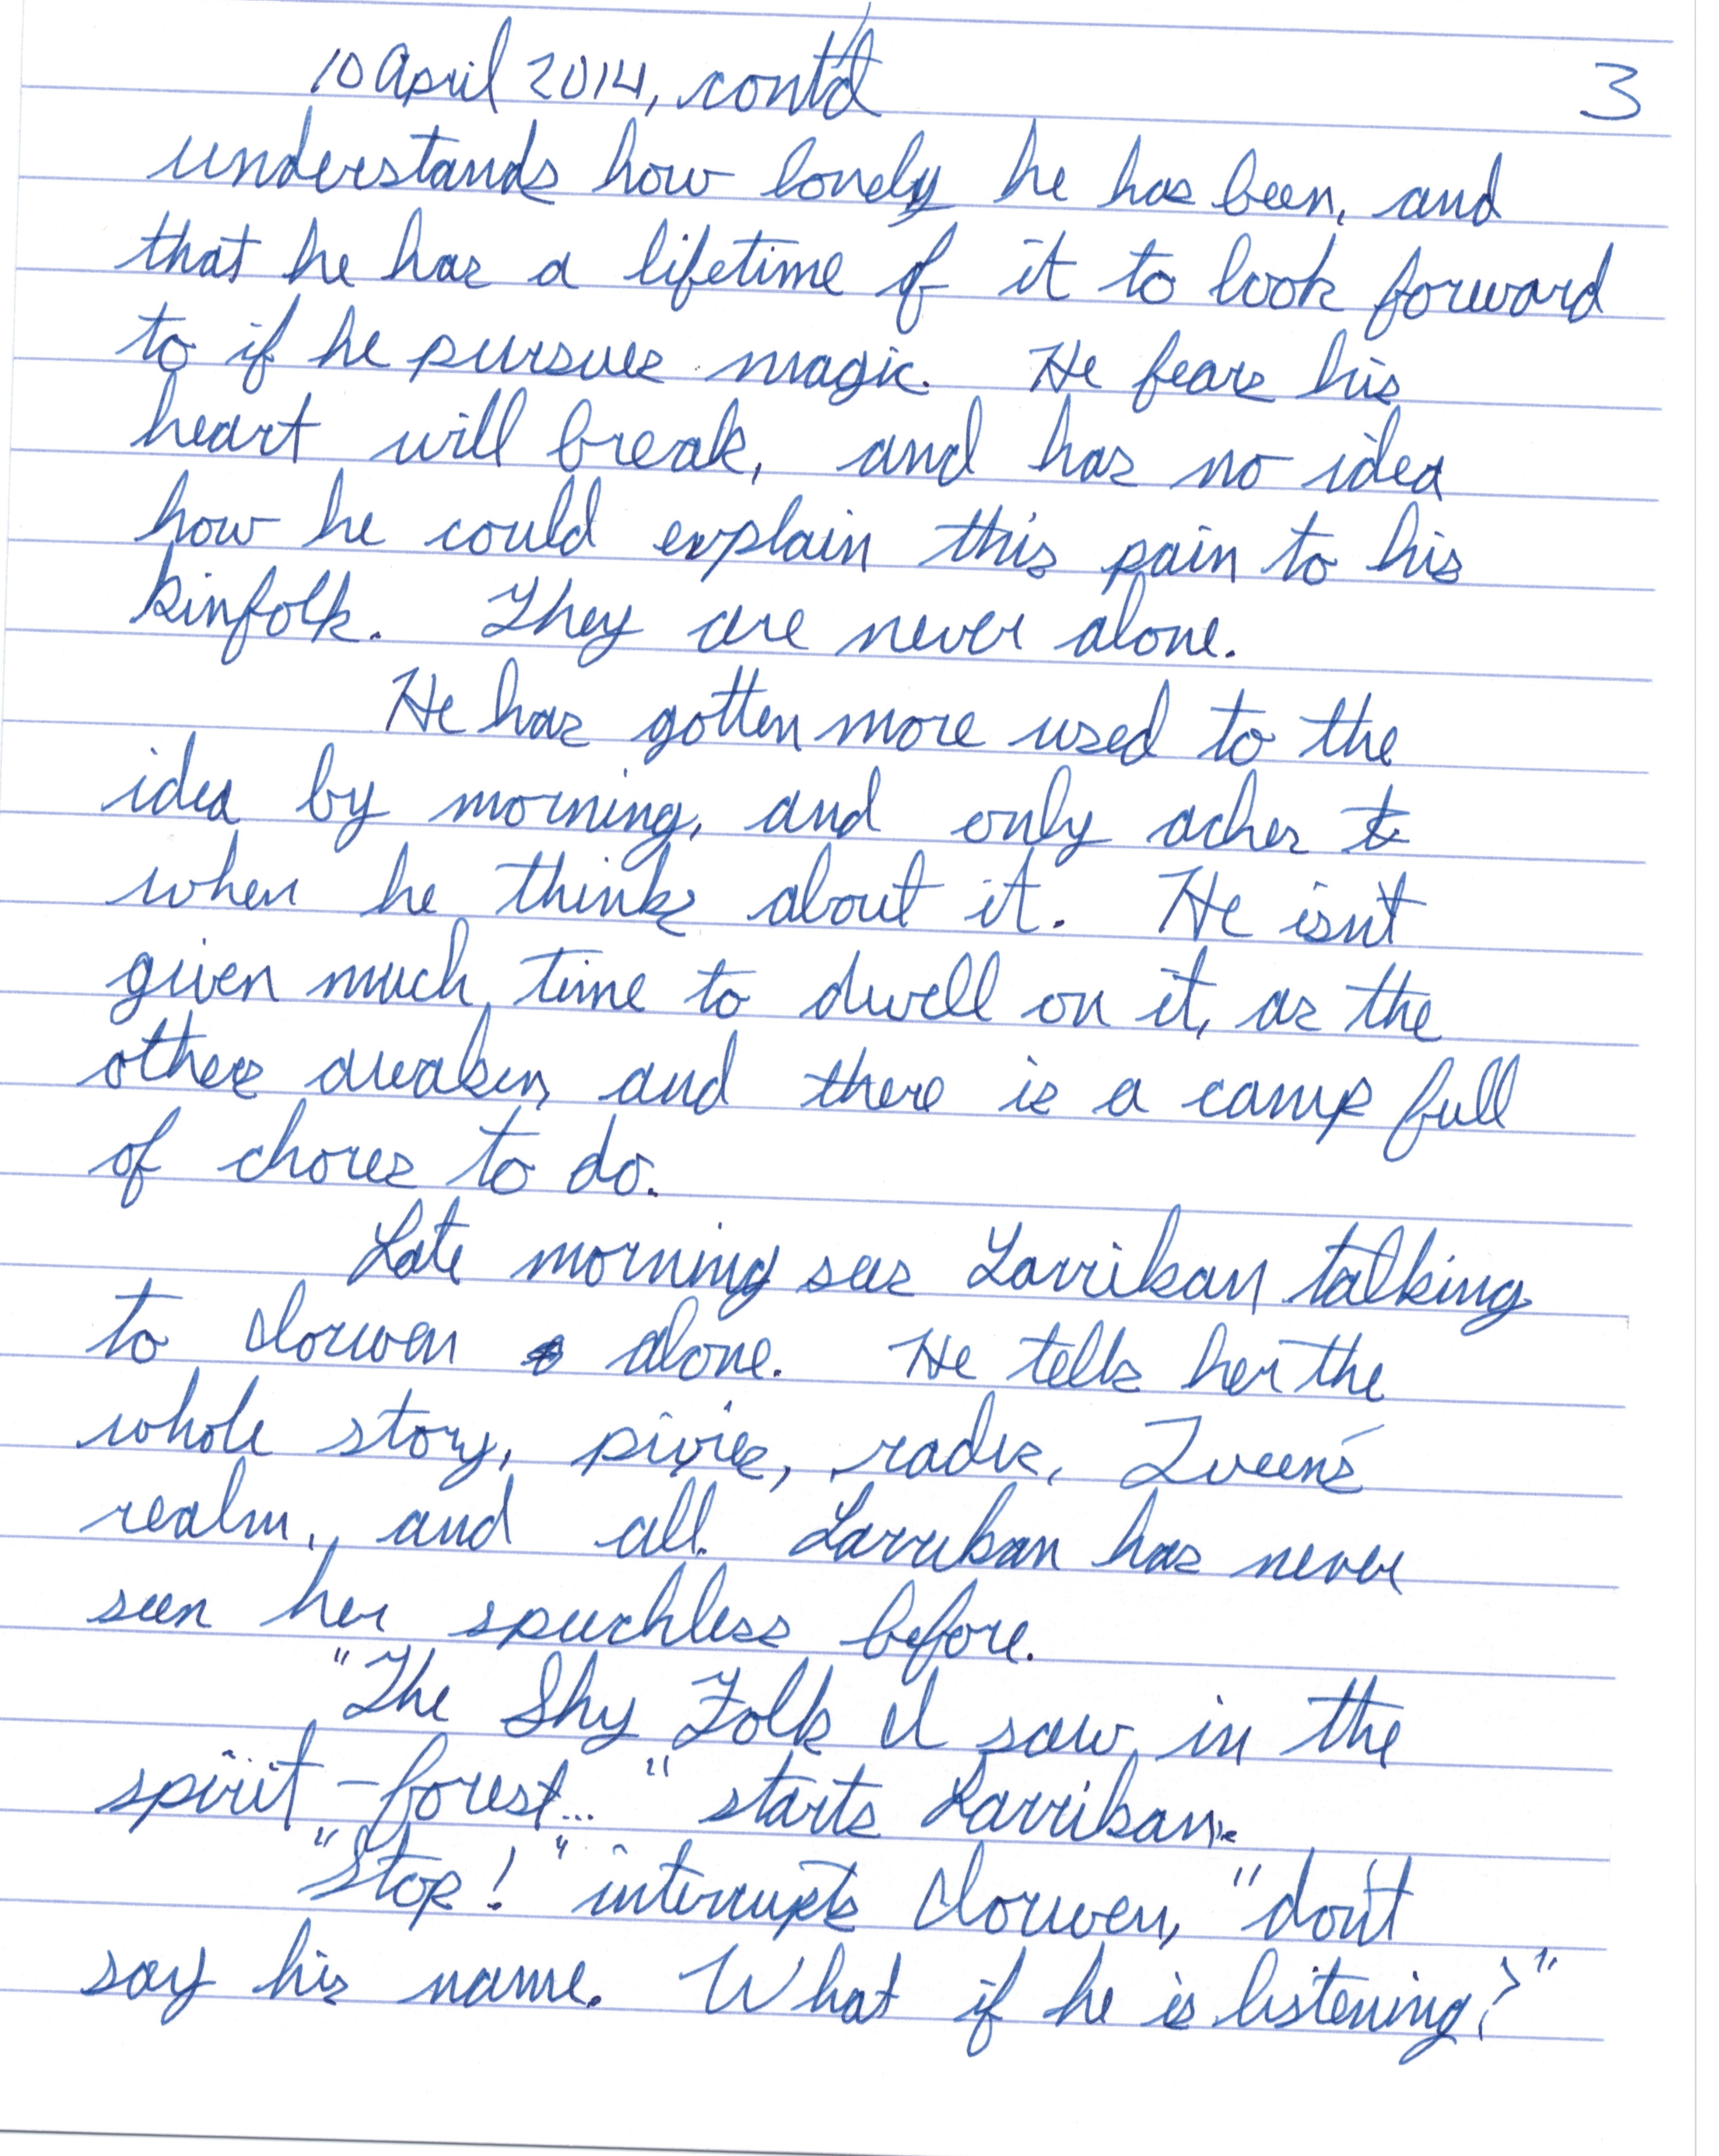 10 April 2014, cont'd 3
understands how lonely he has been, and
that he has a lifetime of it to look forward
to if he pursues magic. He fears his
heart will break, and has no idea
how he could explain this pain to his
kinfolk. They are never alone.
He has gotten more used to the
idea by morning, and only aches
when he thinks about it. He isn't
given much time to dwell on it, as the
others awaken, and there is a camp full
of chores to do.
Late morning sees Larrikan talking
to alone. He tells her the
whole story, pixies, rads, Queen's
realm, and all. Larrikan has never
seen her speechless before.
"The Shy Folk I saw in the
spirit-forest..." starts Larrikan.
"Stop!" interrupts "don't
say his name. What if he is listening?"